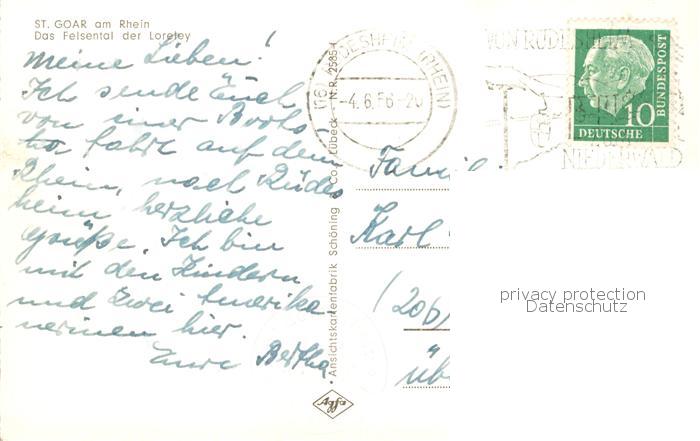 ST. GOAR am Rhein
Das Felsental der Loreley
Meine Lieben!
Ich sende Euch
von einer Boots
fahrt auf dem
Rhein, nach Rüdes
heim herzliche
Grüße. Ich bin
mit den Kindern
und zwei Amerika
nerinnen hier.
Eure Bertha
Ansichtskartenfabrik Schöning & Co., Lübeck - N.R. 2585
Agfa
RÜDESHEIM (RHEIN)
-4.6.56-20
VON RÜDESHEIM
NIEDERWALD
10
DEUTSCHE
BUNDESPOST
Familie
Karl
(20b)
üb
privacy protection
Datenschutz